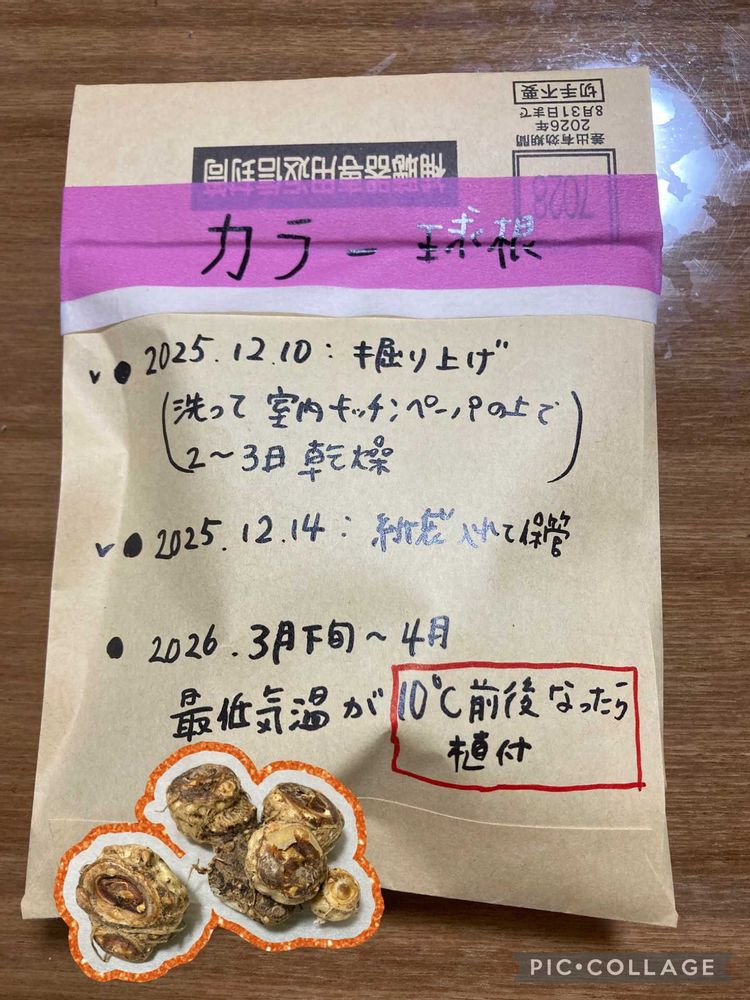 切手不要
差出有効期間
2026年
8月31日まで
7028
補聴器専用返信封筒
カラー 球根
● 2025.12.10：掘り上げ
(洗って室内キッチンペーパの上で
2～3日乾燥)
● 2025.12.14：紙袋入れて保管
● 2026.3月下旬～4月
最低気温が10℃前後なったら
植付
PIC•COLLAGE